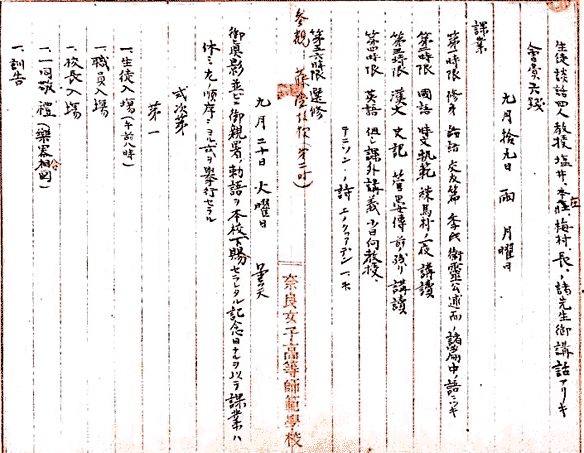 生徒談話四人教授塩井、本庄、梅村、長、諸先生御講話アリキ
會費六錢
九月拾九日 雨 月曜日
課業
第一時限 修身 論語 交友篇 季氏 衛靈公 述而ノ諸篇中ノ語ニツキ
第二時限 國語 時文軌範 練馬村ノ一段 講讀
第三時限 漢文 史記 管晏傳 前殘リ 講讀
第四時限 英語 但シ課外講義 小日向教授
テニソン詩 エノックアーデン
第五六時限 選修
参観
九月二十日 火曜日 曇天
奈良女子高等師範學校
御眞影並ビニ御親署ノ勅語ヲ本校ニ下賜セラレタル記念日ナルヲ以テ課業ハ
休ミ左ノ順序ニヨル式ヲ擧行セラル
式次第
第一
一、生徒入場(午前八時)
一、職員入場
一、校長入場
一、一同敬禮(樂器相圖)
一、訓告